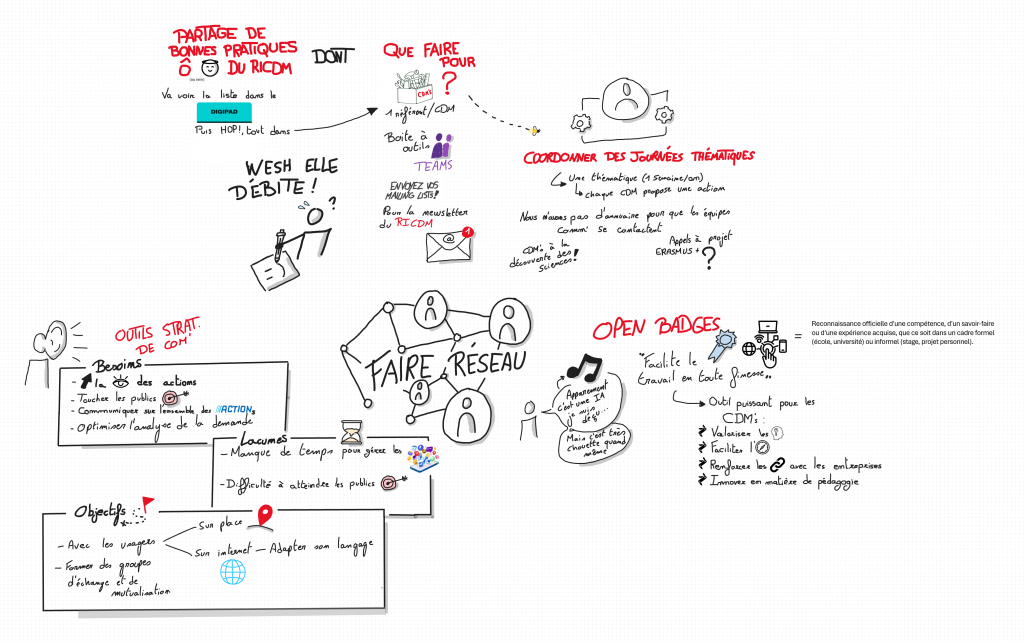 PARTAGE DE
BONNES PRATIQUES
Ô DU RICDM
DONT
Va voir la liste dans le
DIGIPAD
Puis HOP!, tout dans
QUE FAIRE
POUR
?
CDMS
1 référent/CDM
Boite à
outils
TEAMS
ENVOYEZ VOS
MAILING LISTS!
Pour la newsletter
du RICDM
@
1
WESH ELLE
DÉBITE !
?
COORDONNER DES JOURNÉES THÉMATIQUES
Une thématique (1 semaine/an)
chaque CDM propose une action
Nous n'avons pas d'annuaire pour que les équipes
comm' se contactent
CDM's à la
découverte des
sciences!
Appels à projet
ERASMUS +
?
FAIRE RÉSEAU
OUTILS STRAT.
DE COM'
Besoins
- la des actions
- Toucher les publics
- Communiquer sur l'ensemble des #ACTIONs
- Optimiser l'analyse de la demande
Lacunes
- Manque de temps pour gérer les
- Difficulté à atteindre les publics
Objectifs
- Avec les usagers
Sur place
Sur internet - Adapter son langage
- Former des groupes
d'échange et de
mutualisation
OPEN BADGES
=
Reconnaissance officielle d'une compétence, d'un savoir-faire
ou d'une expérience acquise, que ce soit dans un cadre formel
(école, université) ou informel (stage, projet personnel).
"Facilite le
travail en toute finesse"
Apparemment
c'est une IA
je suis
déçu...
Mais c'est très
chouette quand
même
Outil puissant pour les
CDM's :
Valoriser les
Faciliter l'
Renforcer les avec les entreprises
Innover en matière de pédagogie